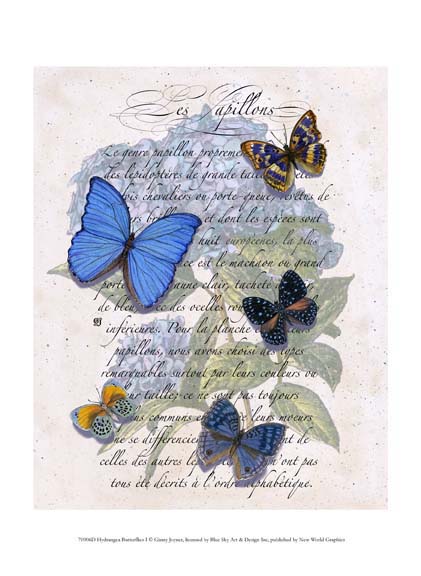 Les Papillons
Le genre papillon propreme
des lépidoptères de grande tail
fois chevaliers ou porte-queue, revêtus de
brill et dont les espères sont
huit europeenes, la plus
ce est le machaon ou grand
porte aune clair, tachete
de bleu, ec des ocelles rou
inferieures. Pour la planche
papillons, nous avons choisi des types
remarquables surtout par leurs couleurs ou
eur taille: ce ne sont pas toujours
ns communs en leurs moeurs
ne se différencien t de
celles des autres le n'ont pas
tous été décrits à l'ordre alphabétique.
79306D Hydrangea Butterflies I © Ginny Joyner, licensed by Blue Sky Art & Design Inc, published by New World Graphics